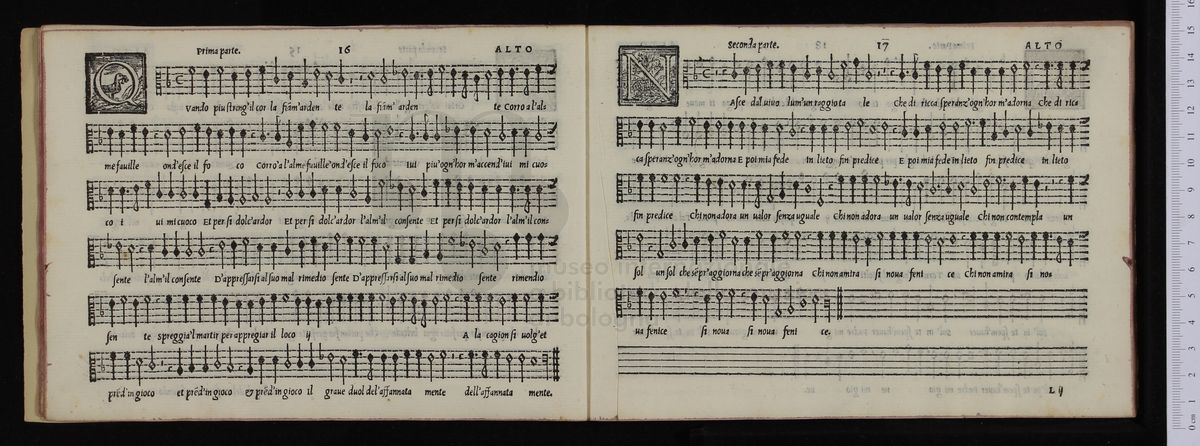 Prima parte. 16 ALTO
Q Vando piu string'il cor la fiam'arden te la fiam' arden te Corro a l'al=
me fauille ond'esce il fo co Corro'a l'alme fauille'ond'esce il foco iui piu'ogn'hor m'accend'iui mi cuo=
co i ui mi cuoco Et per si dolc'ardor Et per si dolc'ardor l'alm'il consente Et per si dolc'ardor l'alm'il con=
sente l'alm'il consente D'appressarsi al suo mal rimedio sente D'appressarsi al suo mal rimedio sente rimendio
sen te spreggia'l martir per appregiar il loco ij A la cagion si uolg'et
prēd'in gioco et prēd'in gioco & prēd'in gioco il graue duol del'affannata mente dell'affannata mente.
Seconda parte. 17 ALTO
N Asce dal uiuo lum'un raggio ta le Che di ricca speranz'ogn'hor m'adorna Che di rica
ca speranz'ogn'hor m'adorna E poi mia fede In lieto fin predice E poi mia fede in lieto fin predice in lieto
fin predice Chi non adora un ualor senza uguale Chi non adora un ualor senza uguale Chi non contempla un
sol un sol che sēpr'aggiorna che sēpr'aggiorna Chi non amira si noua feni ce Chi non amira si no=
ua fenice si noua si noua feni ce.
L ij
museo
biblio
bologn